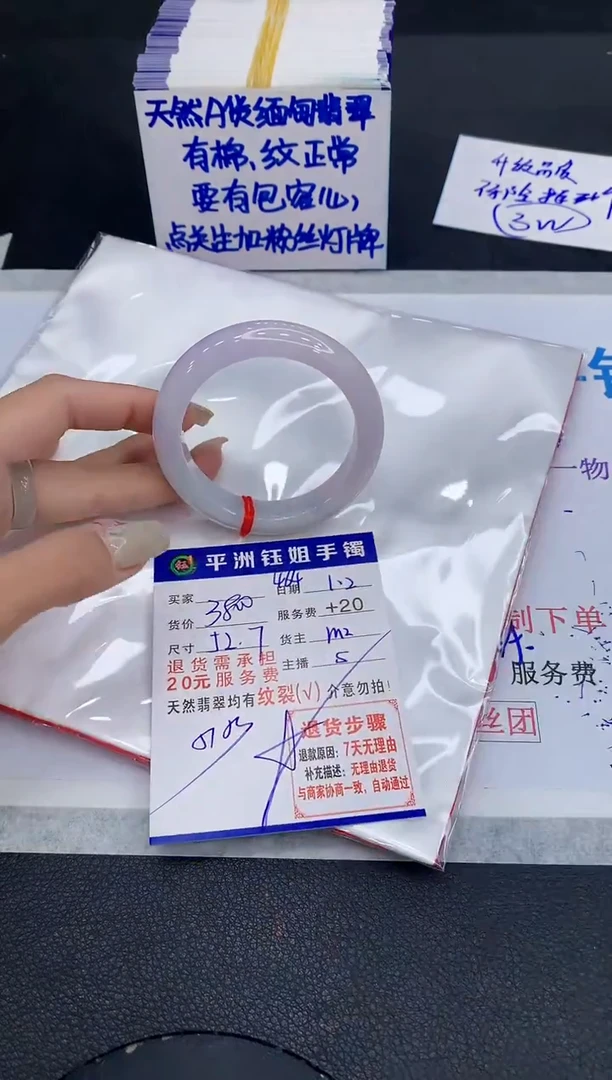 天然A货缅甸翡翠
有棉、纹正常
要有包容心,
点关注加粉丝灯牌
升级品质
(3W)
一物
平洲钰姐手镯
买家 444 日期 1.2
货价 3800 服务费 +20
尺寸 12.7 货主 m2
退货需承担 主播 5
20元服务费
天然翡翠均有纹裂(√) 介意勿拍!
退货步骤
退款原因: 7天无理由
补充描述: 无理由退货
与商家协商一致, 自动通过
制下单
服务费
丝团